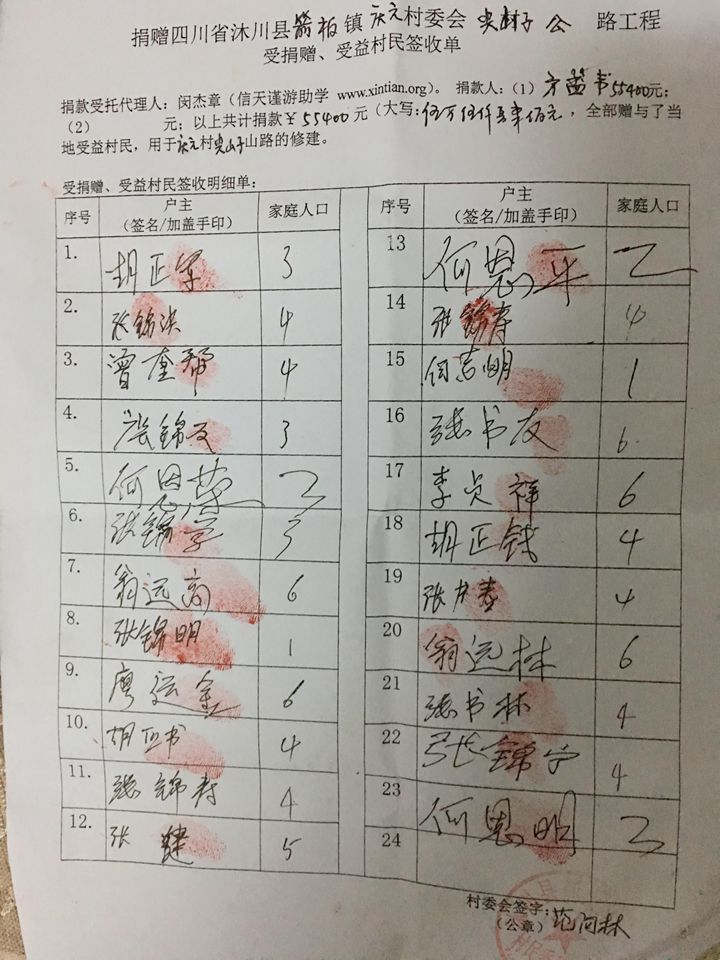 捐赠四川省沐川县箭板镇庆元村委会尖山子公路工程
受捐赠、受益村民签收单
捐款受托代理人：闵杰章（信天谨游助学 www.xintian.org）。捐款人：（1）方益书55400元；
（2）　　元；以上共计捐款￥55400元（大写：伍万伍仟肆佰元，全部赠与了当
地受益村民，用于庆元村尖山子山路的修建。
受捐赠、受益村民签收明细单：
序号 户主（签名/加盖手印） 家庭人口 序号 户主（签名/加盖手印） 家庭人口
1. 胡正军 3 13 何恩平 2
2. 张锦洪 4 14 张锦寿 4
3. 曾奎帮 4 15 何吉明 1
4. 张锦友 3 16 张书友 6
5. 何恩荣 2 17 李贞祥 6
6. 张锦学 3 18 胡正钱 4
7. 翁远高 6 19 张书春 4
8. 张锦明 1 20 翁远林 6
9. 廖运金 6 21 张书林 4
10. 胡正书 4 22 张锦宁 4
11. 张锦寿 4 23 何恩明 3
12. 张建 5 24
村委会签字：范河林
（公章）